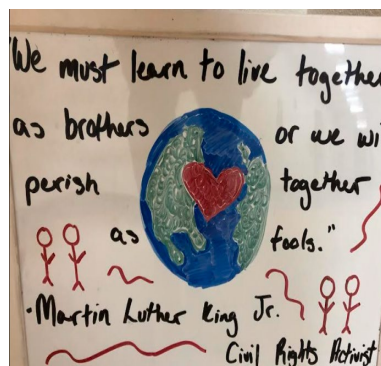 "We must learn to live together
as brothers or we wi
perish together
as fools."
·Martin Luther King Jr.
Civil Rights Activist